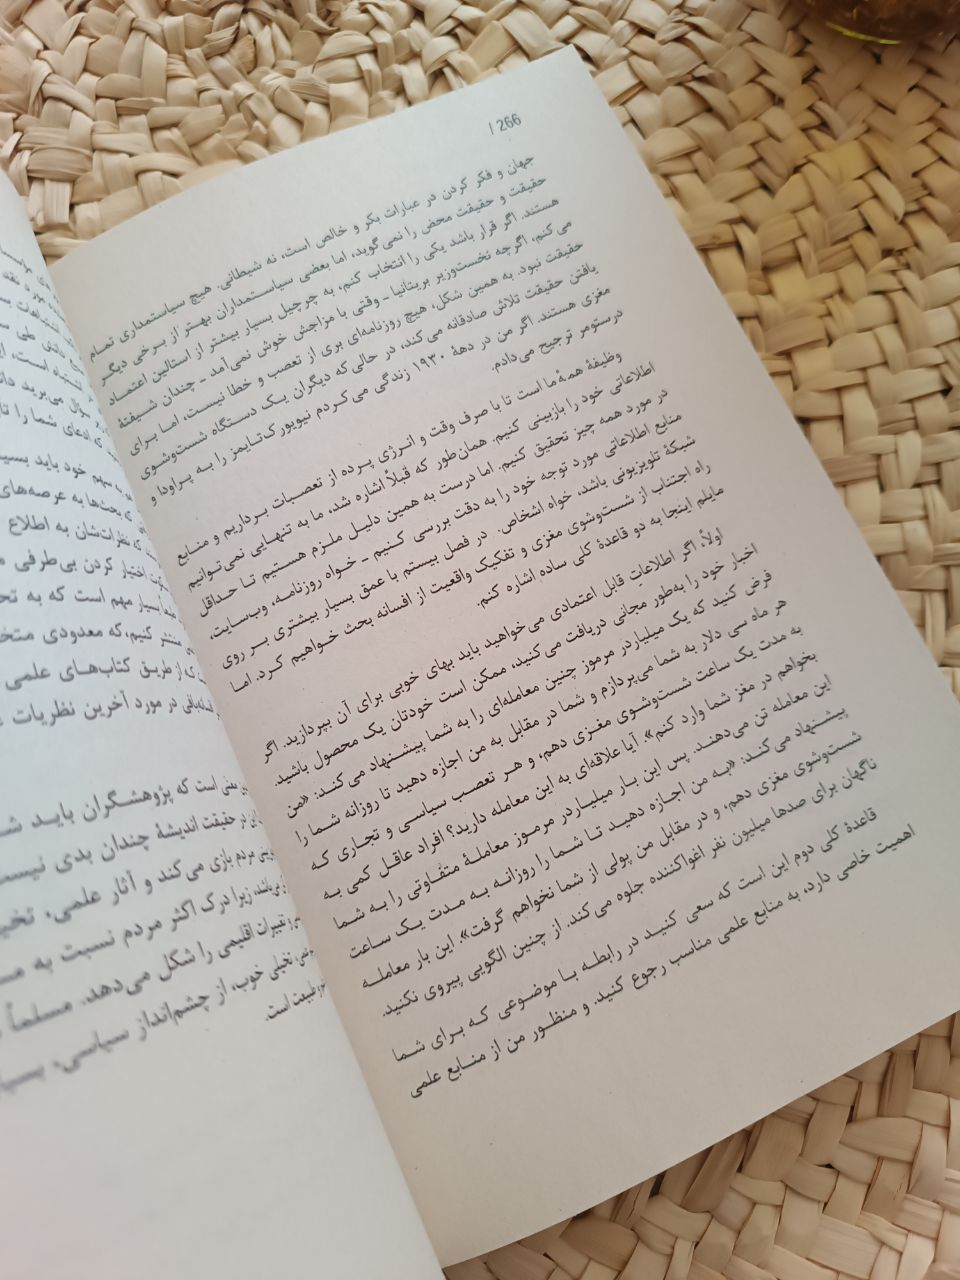 266 |
جهان و فکر کردن در عبارات بکر و خالص است، نه شیطانی. هیچ سیاستمداری تمام
حقیقت و حقیقت محض را نمی‌گوید، اما بعضی سیاستمداران بهتر از برخی دیگر
هستند. اگر قرار باشد یکی را انتخاب کنم، به چرچیل بسیار بیشتر از استالین اعتماد
می‌کنم، اگرچه نخست‌وزیر بریتانیا ـ وقتی با مزاجش خوش نمی‌آمد ـ چندان شیفتهٔ
حقیقت نبود. به همین شکل، هیچ روزنامه‌ای بری از تعصب و خطا نیست، اما برای
یافتن حقیقت تلاش صادقانه می‌کند، در حالی که دیگران یک دستگاه شست‌وشوی
مغزی هستند. اگر من در دههٔ ۱۹۳۰ زندگی می‌کردم نیویورک‌تایمز را به پراودا و
درستومر ترجیح می‌دادم.
وظیفهٔ همهٔ ما است تا با صرف وقت و انرژی پرده از تعصبات برداریم و منابع
اطلاعاتی خود را بازبینی کنیم. همان‌طور که قبلاً اشاره شد، ما به تنهایی نمی‌توانیم
در مورد همه چیز تحقیق کنیم. اما درست به همین دلیل ملزم هستیم تا حداقل
منابع اطلاعاتی مورد توجه خود را به دقت بررسی کنیم ـ خواه روزنامه، وب‌سایت،
شبکهٔ تلویزیونی باشد، خواه اشخاص. در فصل بیستم با عمق بسیار بیشتری بر روی
راه اجتناب از شست‌وشوی مغزی و تفکیک واقعیت از افسانه بحث خواهیم کرد. اما
مایلم اینجا به دو قاعدهٔ کلی ساده اشاره کنم.
اولاً، اگر اطلاعاتِ قابل اعتمادی می‌خواهید باید بهای خوبی برای آن بپردازید. اگر
اخبار خود را به‌طور مجانی دریافت می‌کنید، ممکن است خودتان یک محصول باشید.
فرض کنید که یک میلیاردر مرموز چنین معامله‌ای را به شما پیشنهاد می‌کند: «من
هر ماه سی دلار به شما می‌پردازم و شما در مقابل به من اجازه دهید تا روزانه شما را
به مدت یک ساعت شست‌وشوی مغزی دهم، و هر تعصب سیاسی و تجاری که
بخواهم در مغز شما وارد کنم». آیا علاقه‌ای به این معامله دارید؟ افراد عاقل کمی به
این معامله تن می‌دهند. پس این بار میلیاردر مرموز معاملهٔ متفاوتی را به شما
پیشنهاد می‌کند: «به من اجازه دهید تا شما را روزانه به مدت یک ساعت
شست‌وشوی مغزی دهم، و در مقابل من پولی از شما نخواهم گرفت». این بار معامله
ناگهان برای صدها میلیون نفر اغواکننده جلوه می‌کند. از چنین الگویی پیروی نکنید.
قاعدهٔ کلی دوم این است که سعی کنید در رابطه با موضوعی که برای شما
اهمیت خاصی دارد، به منابع علمی مناسب رجوع کنید. و منظور من از منابع علمی
مورد نقد
دانش طی
اشتباه است،
سؤال می‌برید
که ادعای شما را
به سهم خود باید
که بحث‌ها به عرصه‌های
که نظرات‌شان به اطلاع
اختیار کردن بی‌طرفی
بسیار مهم است که به
منتشر کنیم، که معدودی
که از طریق کتاب‌های علمی
در مورد آخرین نظریات
معنی است که پژوهشگران باید
در حقیقت اندیشهٔ چندان بدی نیست
مردم بازی می‌کند و آثار علمی،
باشد، زیرا درک اکثر مردم نسبت به
و تغییرات اقلیمی را شکل می‌دهد. مسلماً
تخیلی خوب، از چشم‌انداز سیاسی،
طبیعت است.